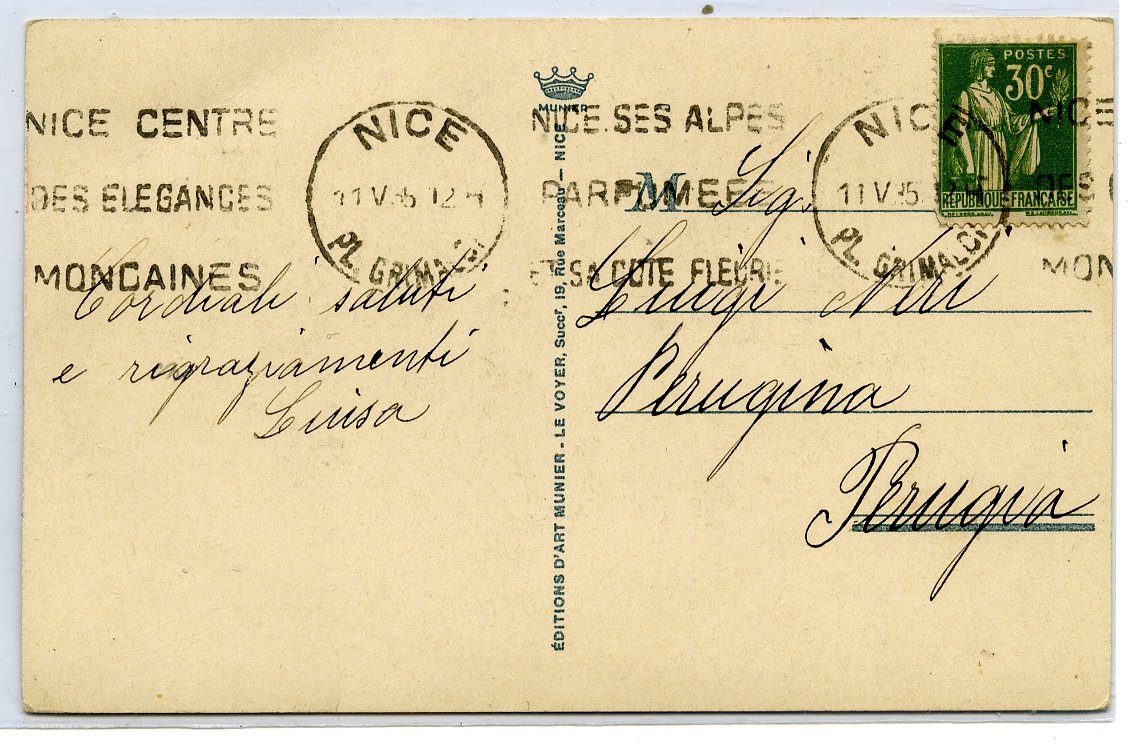 NICE CENTRE
DES ELEGANCES
MONDAINES
NICE
11 V 35 12 H
PL. GRIMALDI
Cordiali saluti
e rigraziamenti
Luisa
MUNIER
ÉDITIONS D'ART MUNIER - LE VOYER, Succr, 19, Rue Marceau - NICE
NICE. SES ALPES
PARFUMEES
ET SA COTE FLEURIE
NICE
11 V 35 12 H
PL. GRIMALDI
POSTES
30c
RÉPUBLIQUE FRANÇAISE
NICE
DES
MON
M Sig.
Luigi Neri
Perugina
Perugia